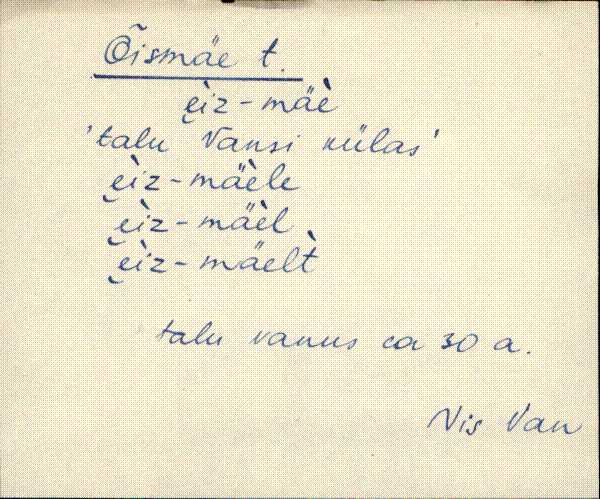 Õismäe t.
e̮i̬z-mäè
'talu Vansi külas'
e̮i̬z-mäèle
e̮i̬z-mäèl
e̮i̬z-mäelt̀
talu vanus ca 30 a.
Nis Van